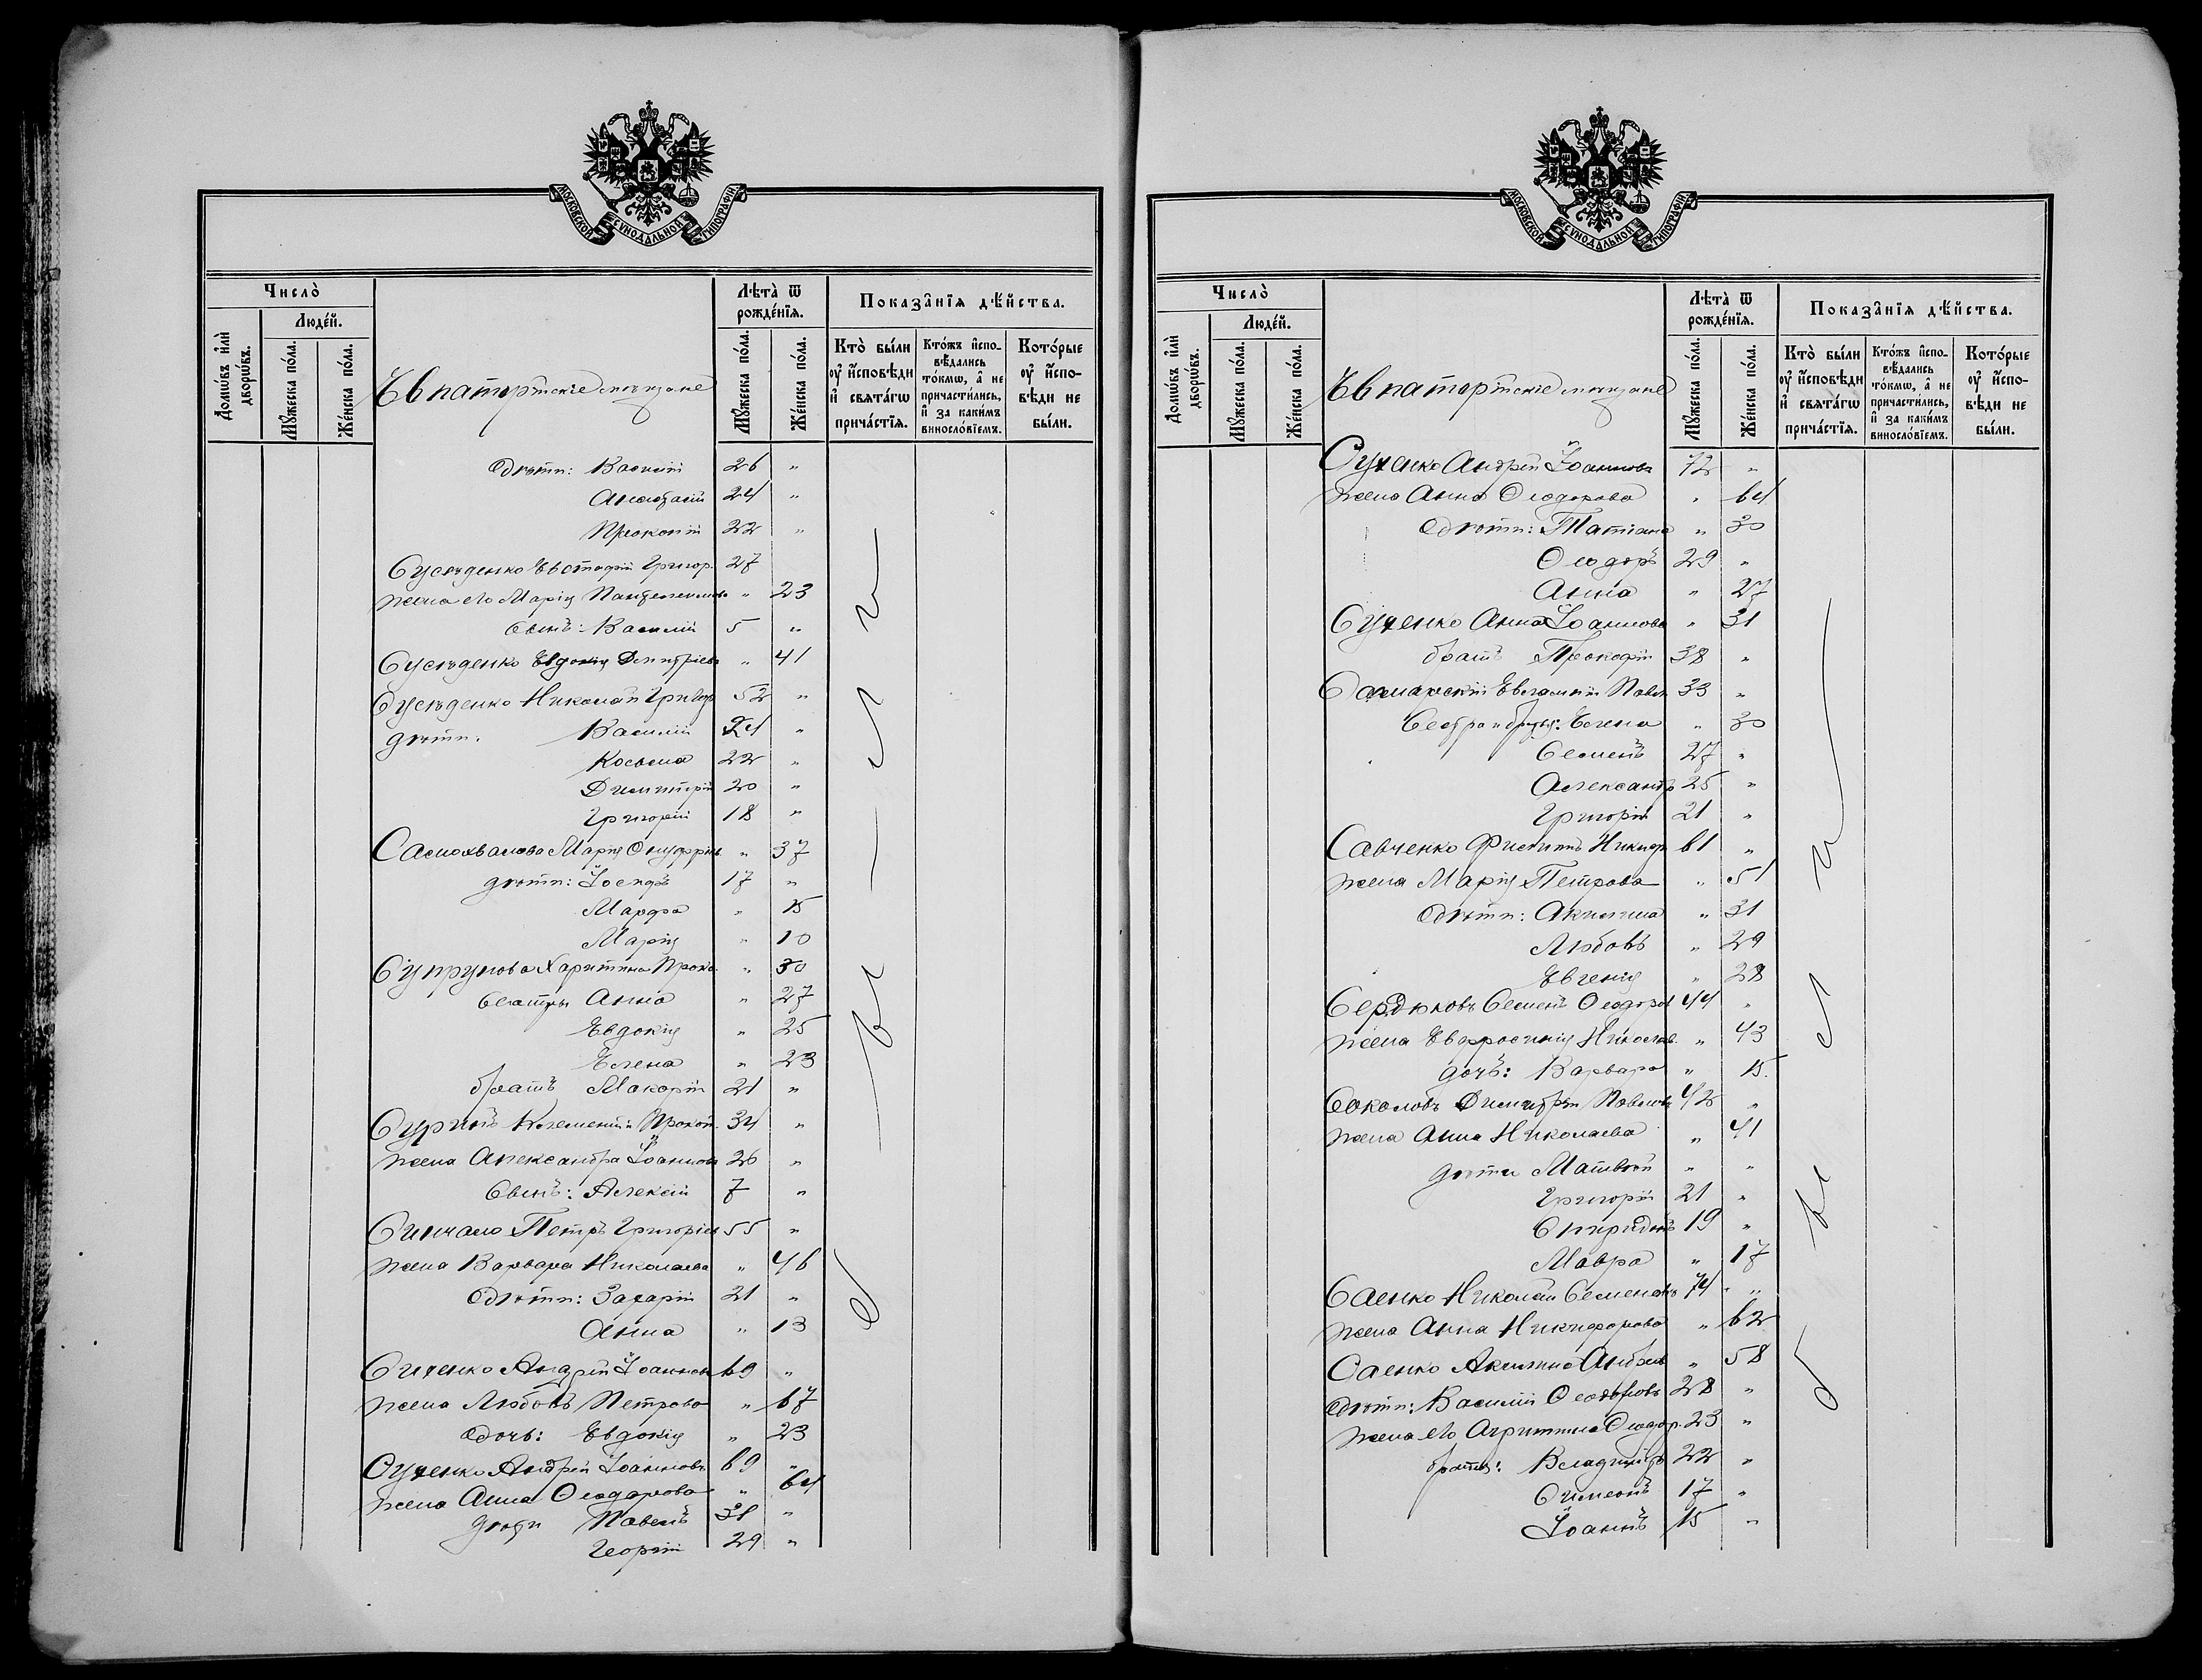 МОСКОВСКОЙ СѴНОДАЛЬНОЙ ТИПОГРАФІИ
Число̀
Людéй.
Домѡ́въ и҆лѝ дворѡ́въ.
Мꙋ́жеска по́ла.
Же́нска по́ла.
Евпаторійскіе мѣщане
Лѣта̀ ѿ рожде́нїѧ.
Мꙋ́жеска по́ла.
Же́нска по́ла.
Показа̑нїѧ дѣ́йства.
Кто̀ бы́ли оу҆ и҆́сповѣди и҆ свѧта́гѡ прича́стїѧ.
Кто́жъ и҆сповѣ́дались то́кмѡ, а҆ не причасти́лись, и҆ за каки́мъ винослові́емъ.
Кото́рые оу҆ и҆́сповѣди не бы́ли.
Дѣти: Василій 26 "
Анастасій 24 "
Прокопій 22 "
Сусѣденко Евстафій Григор. 27
жена его Марія Пантелеимонова " 23
Сынъ: Василій 5 "
Сусѣденко Евдокія Димитріева " 41
Сусѣденко Николай Григор 52 "
дѣти. Василій 24 "
Косьма 22 "
Димитрій 20 "
Григорій 18 "
Самохвалова Марія Онуфріев " 37
дѣти: Іосифъ 17 "
Марфа " 15
Марія " 10
Супрунова Харитина Проко. " 30
Сестры Анна " 27
Евдокія " 25
Елена " 23
братъ Макарій 21 "
Суринъ Климентій Прокоп. 34 "
жена Александра Іоаннова 26 "
Сынъ: Алексій 7 "
Синчало Петръ Григоріев 55 "
жена Варвара Николаева " 46
Дѣти: Захарій 21 "
Анна " 13
Сиченко Андрей Іоаннов 69 "
жена Любовь Петрова " 67
Дочь: Евдокія " 23
Сученко Андрей Іоанновъ 69 "
жена Анна Ѳеодорова " 64
дѣти Павелъ 31 "
Георгій 29 "
были
МОСКОВСКОЙ СѴНОДАЛЬНОЙ ТИПОГРАФІИ
Число̀
Людéй.
Домѡ́въ и҆лѝ дворѡ́въ.
Мꙋ́жеска по́ла.
Же́нска по́ла.
Евпаторійскіе мѣщане
Лѣта̀ ѿ рожде́нїѧ.
Мꙋ́жеска по́ла.
Же́нска по́ла.
Показа̑нїѧ дѣ́йства.
Кто̀ бы́ли оу҆ и҆́сповѣди и҆ свѧта́гѡ прича́стїѧ.
Кто́жъ и҆сповѣ́дались то́кмѡ, а҆ не причасти́лись, и҆ за каки́мъ винослові́емъ.
Кото́рые оу҆ и҆́сповѣди не бы́ли.
Сученко Андрей Іоанновъ 72 "
жена Анна Ѳеодорова " 64
Дѣти: Татіана " 30
Ѳеодоръ 29 "
Анна " 27
Сученко Анна Іоаннова " 31
братъ Прокофій 38 "
Евгеній Павл 33 "
Сестра и братья: Елена " 30
Семенъ 27 "
Александръ 25 "
Григорій 21 "
Савченко Филиппъ Никифр 61 "
жена Марія Петрова " 51
Дѣти: Акилина " 31
Любовь " 29
Евгенія " 28
Сердюковъ Семенъ Ѳеодоров 44 "
жена Евфросинія Николаев. " 43
дочь: Варвара " 15.
Соколовъ Димитрій Павловъ 42 "
жена Анна Николаева " 41
дѣти Матвѣй " "
Григорій 21 "
Спиридонъ 19 "
Мавра " 17
Саенко Николай Семеновъ 74 "
жена Анна Никифорова " 62
Саенко Акилина Андреев " 58
Дѣти: Василій Ѳеодоровъ 28 "
жена его Агрипина Ѳеодор. 23 "
братья: Владиміръ 22 "
Симеонъ 17 "
Іоаннъ 15 "
были